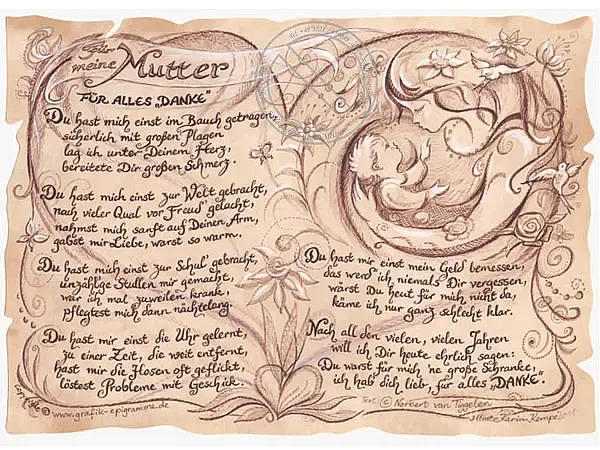 Für
meine Mutter
FÜR ALLES „DANKE“
Du hast mich einst im Bauch getragen,
sicherlich mit großen Plagen
lag ich unter Deinem Herz,
bereitete Dir großen Schmerz.
Du hast mich einst zur Welt gebracht,
nach vieler Qual vor Freud' gelacht,
nahmst mich sanft auf Deinen Arm,
gabst mir Liebe, warst so warm.
Du hast mich einst zur Schul' gebracht,
unzählge Stullen mir gemacht,
war ich mal zuweilen krank,
pflegtest mich dann nächtelang.
Du hast mir einst die Uhr gelernt,
zu einer Zeit, die weit entfernt,
hast mir die Hosen oft geflickt,
löstest Probleme mit Geschick.
Du hast mir einst mein Geld bemessen,
das werd' ich niemals Dir vergessen,
wärst Du heut' für mich nicht da,
käme ich nur ganz schlecht klar.
Nach all den vielen, vielen Jahren
will ich Dir heute ehrlich sagen:
Du warst für mich 'ne große Schranke,
ich hab' dich lieb, für alles „DANKE“.
© www.grafik-epigramme.de
Text © Norbert van Tiggelen
Karin Kempe